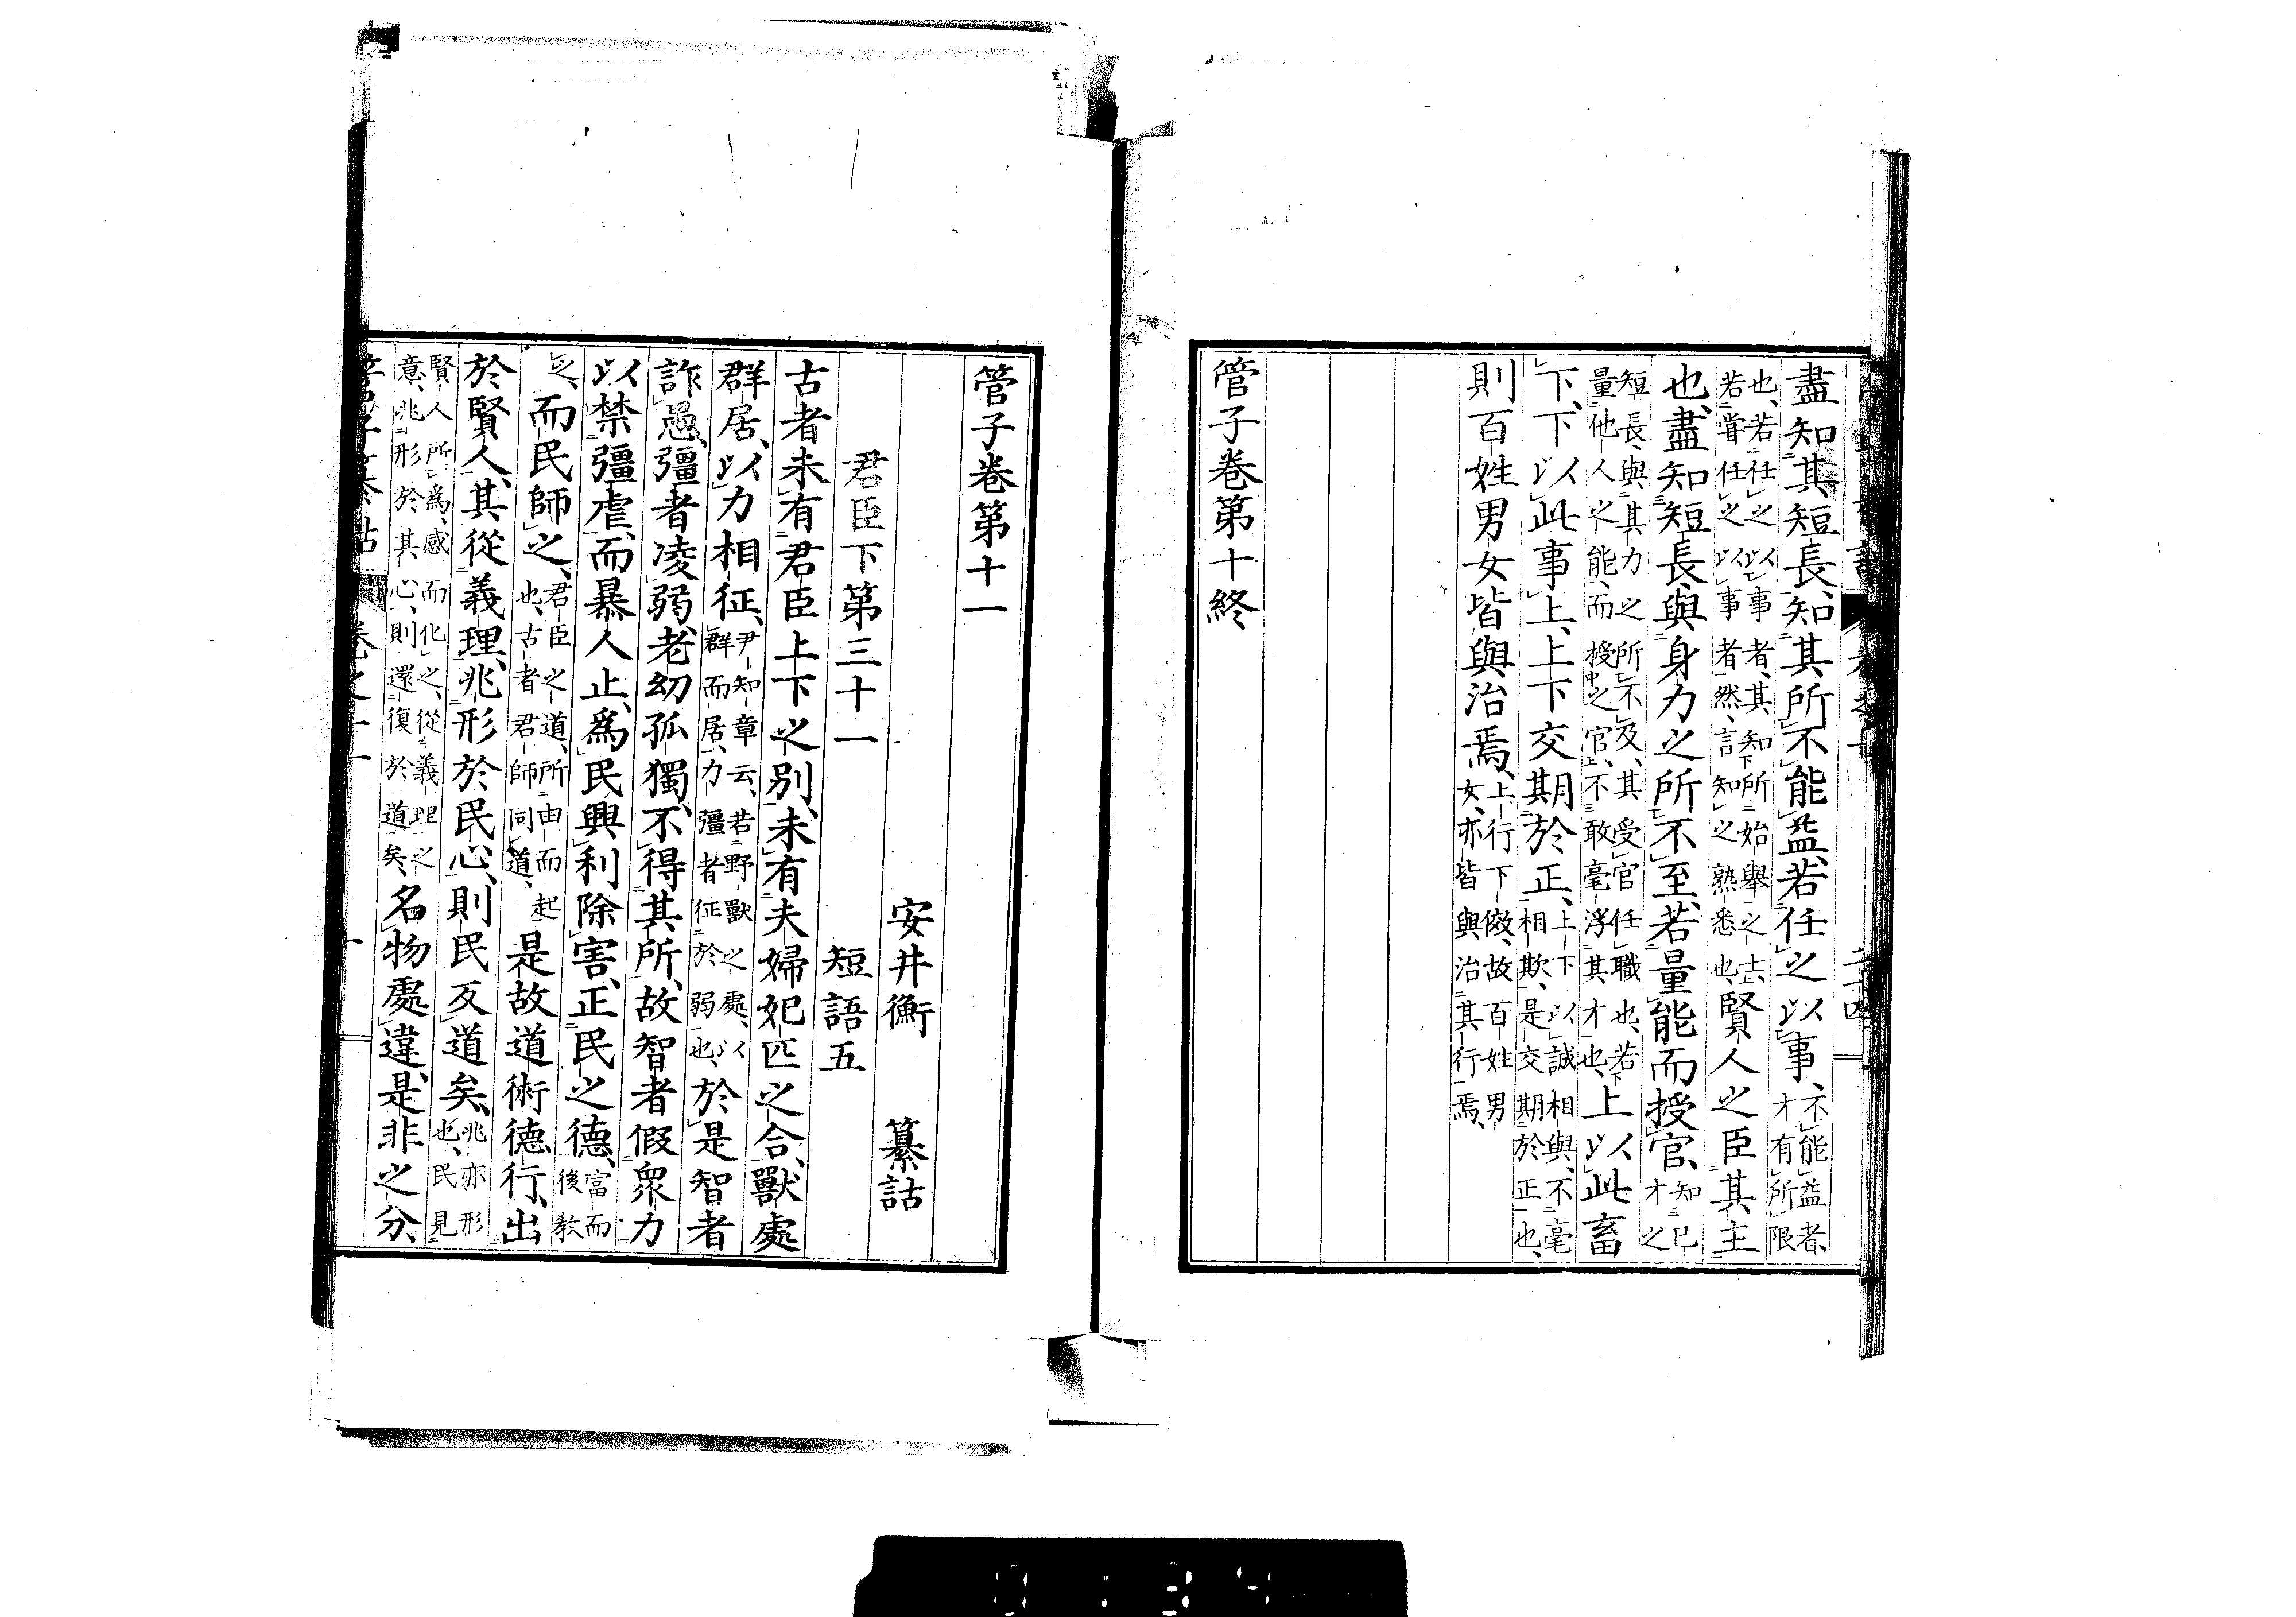 盡知其短長、知其所不能益、若任之以事、不能益者、
才有所限
也、若任之以事者、其知所始舉之士、
若嘗任之以事者然、言知之熟悉也、賢人之臣其主
也、盡知短長、與身力之所不至、若量能而授官、知己
才之
短長、與其力之所不及、其受官任職也、若
量他人之能、而授之官、不敢毫浮其才也、上以此畜
下、下以此事上、上下交期於正、上下以誠相與、不毫
相欺、是交期於正也、
則百姓男女皆與治焉、上行下傚、故百姓男
女、亦皆與治其行焉、
管子卷第十終
管子卷第十一
安井衡 纂詁
君臣下第三十一 短語五
古者未有君臣上下之別、未有夫婦妃匹之合、獸處
群居、以力相征、尹知章云、若野獸之處、以
群而居、力彊者征於弱也、於是智者
詐愚、彊者凌弱、老幼孤獨、不得其所、故智者假衆力
以禁彊虐、而暴人止、爲民興利除害、正民之德、富而
後教
之、而民師之、君臣之道、所由而起
也、古者君師同道、是故道術德行、出
於賢人、其從義理、兆形於民心、則民反道矣、兆亦形
也、民見
賢人所爲、感而化之、從義理之
意、兆形於其心、則還復於道矣、名物處違、是非之分、